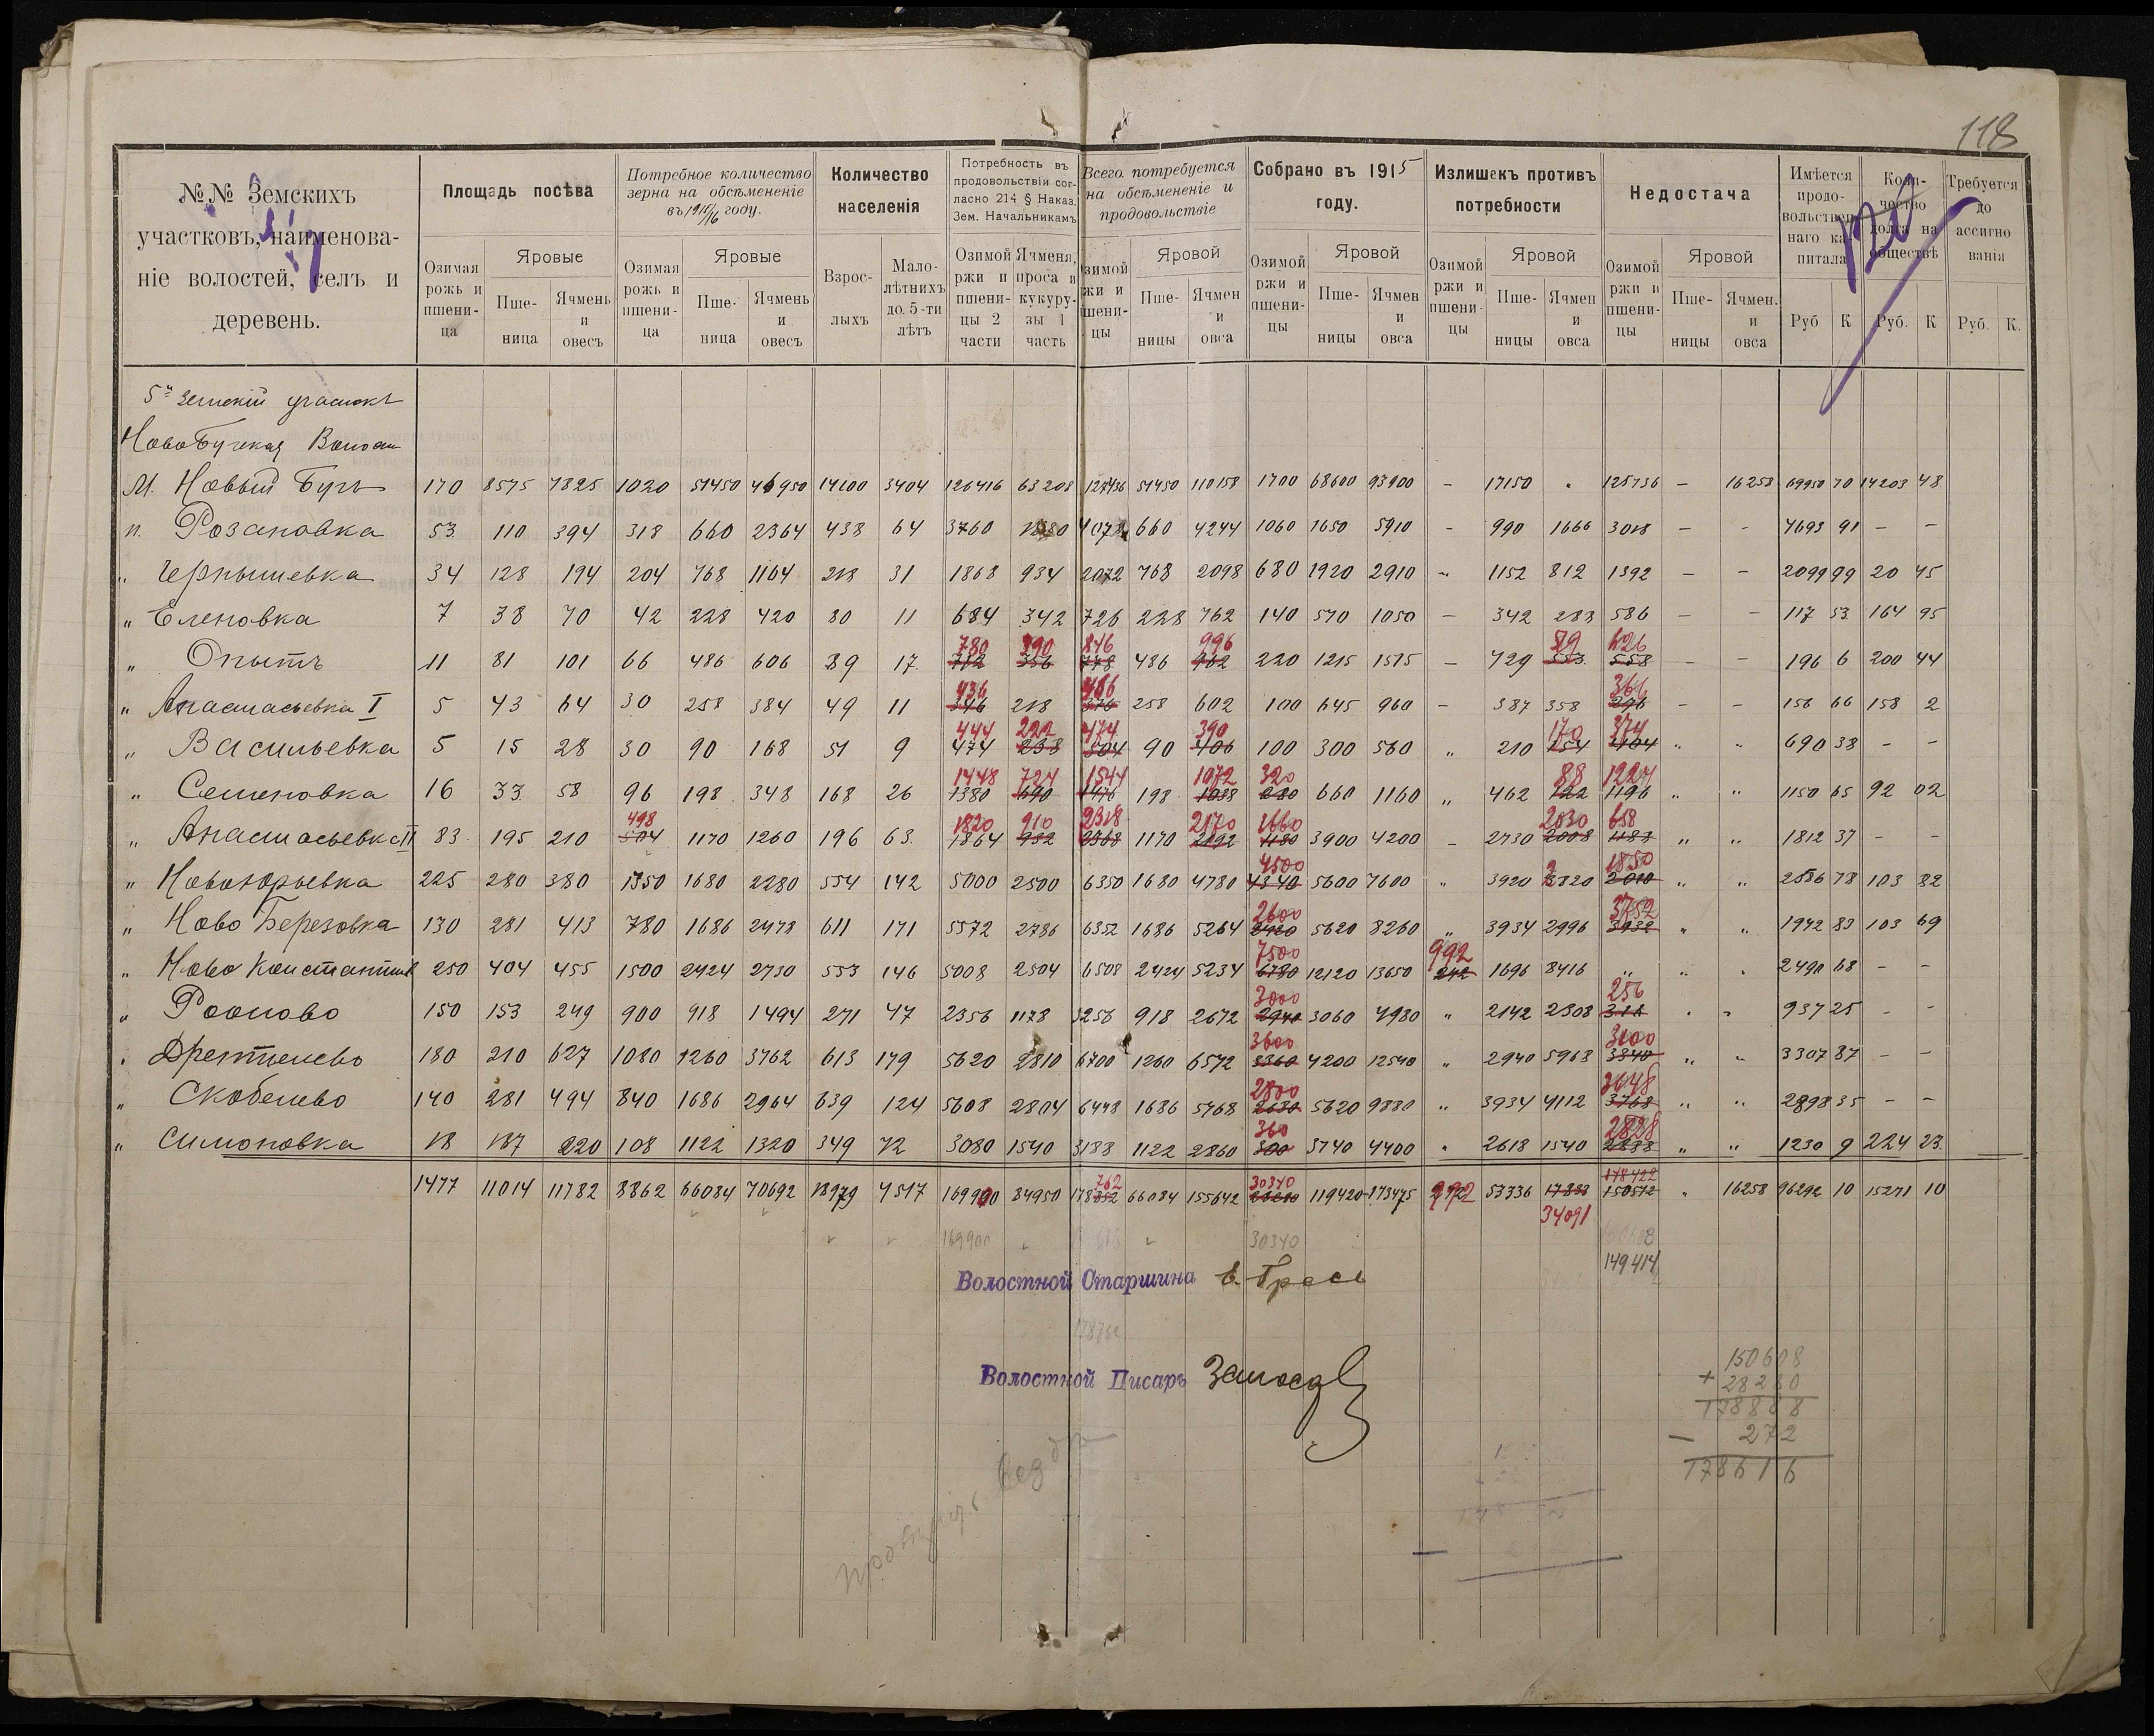 118
№№ Земскихъ участковъ, наименованіе волостей, селъ и деревень.
Площадь посѣва
Озимая рожь и пшеница
Яровые
Пшеница
Ячмень и овесъ
Потребное количество зерна на обсѣмененіе въ 1915/16 году.
Озимая рожь и пшеница
Яровые
Пшеница
Ячмень и овесъ
Количество населенія
Взрослыхъ
Малолѣтнихъ до 5-ти лѣтъ
Потребность въ продовольствіи согласно 214 § Наказ. Зем. Начальникамъ
Озимой ржи и пшеницы 2 части
Ячменя, проса и кукурузы 1 часть
Всего потребуется на обсѣмененіе и продовольствіе
зимой ржи и пшеницы
Яровой
Пшеницы
Ячмен и овса
Собрано въ 1915 году.
Озимой ржи и пшеницы
Яровой
Пшеницы
Ячмен и овса
Излишекъ противъ потребности
Озимой ржи и пшеницы
Яровой
Пшеницы
Ячмен и овса
Недостача
Озимой ржи и пшеницы
Яровой
Пшеницы
Ячмен. и овса
Имѣется продовольствен наго капитала
Руб К
Количество долга на обществѣ
Руб. К
Требуется до ассигнованія
Руб. К.
5й земскій участокъ
НовоБугская Волость
М. Новый Бугъ 170 8575 7825 1020 51450 46950 14200 3404 126416 63208 127436 51450 110158 1700 68600 93900 - 17150 " 125736 - 16258 69950 70 14203 48
п. Розановка 53 110 394 318 660 2364 438 64 3760 1880 4078 660 4244 1060 1650 5910 - 990 1666 3018 - - 7693 91 - -
" Чернышевка 34 128 194 204 768 1164 218 31 1868 934 2072 768 2098 680 1920 2910 - 1152 812 1392 - - 2099 99 20 45
" Еленовка 7 38 70 42 228 420 80 11 684 342 726 228 762 140 570 1050 - 342 288 586 - - 117 53 164 95
780 390 846 996 626
" Опытъ 11 81 101 66 486 606 89 17 712 356 778 486 962 220 1215 1515 - 729 553 558 - - 196 6 200 44
436 466 366
" Анастасьевка I 5 43 64 30 258 384 49 11 346 218 376 258 602 100 645 960 - 387 358 296 - - 156 66 158 2
444 222 474 390 170 374
" Васильевка 5 15 28 30 90 168 51 9 474 238 504 90 406 100 300 560 " 210 154 404 " " 690 38 - -
1448 724 1544 1072 320 88 1224
" Семеновка 16 33 58 96 198 348 168 26 1380 690 1476 198 1038 280 660 1160 " 462 122 1196 " " 1150 65 92 02
498 1820 910 2318 2170 1660 2030 658
" Анастасьевка II 83 195 210 504 1170 1260 196 63 1864 932 2368 1170 2192 1180 3900 4200 - 2730 2008 1188 " " 1812 37 - -
4500 1850
" Новоюрьевка 225 280 380 1350 1680 2280 554 142 5000 2500 6350 1680 4780 4340 5600 7600 " 3920 2820 2010 " " 2586 78 103 82
2600 3752
" Ново Березовка 130 281 413 780 1686 2478 611 171 5572 2786 6352 1686 5264 2420 5620 8260 " 3934 2996 3932 " " 1942 83 103 69
7500 992
" Ново Константин 250 404 455 1500 2424 2730 553 146 5008 2504 6508 2424 5234 6780 12120 13650 272 1696 8416 " " " 2490 68 - -
3000 256
" 150 153 249 900 918 1494 271 47 2356 1178 3256 918 2672 2940 3060 4980 " 2142 2308 316 " " 937 25 - -
3600 3100
" 180 210 627 1080 1260 3762 613 179 5620 2810 6700 1260 6572 3360 4200 12540 " 2940 5968 3340 " " 3307 87 - -
2800 3648
" Скобелево 140 281 494 840 1686 2964 639 124 5608 2804 6448 1686 5768 2680 5620 9880 " 3934 4112 3768 " " 2898 35 - -
360 2828
" Симоновка 18 187 220 108 1122 1320 349 72 3080 1540 3188 1122 2860 300 3740 4400 " 2618 1540 2888 " " 1230 9 224 23
762 30340 178422
1477 11014 11782 8862 66084 70692 18979 4517 169900 84950 178352 66084 155642 119420 173475 992 53336 17833 150572 " 16258 96292 10 15271 10
34091
169900 30340
149414
Волостной Старшина
178762
Волостной Писарь
150608
+ 28280
178888
- 272
178616